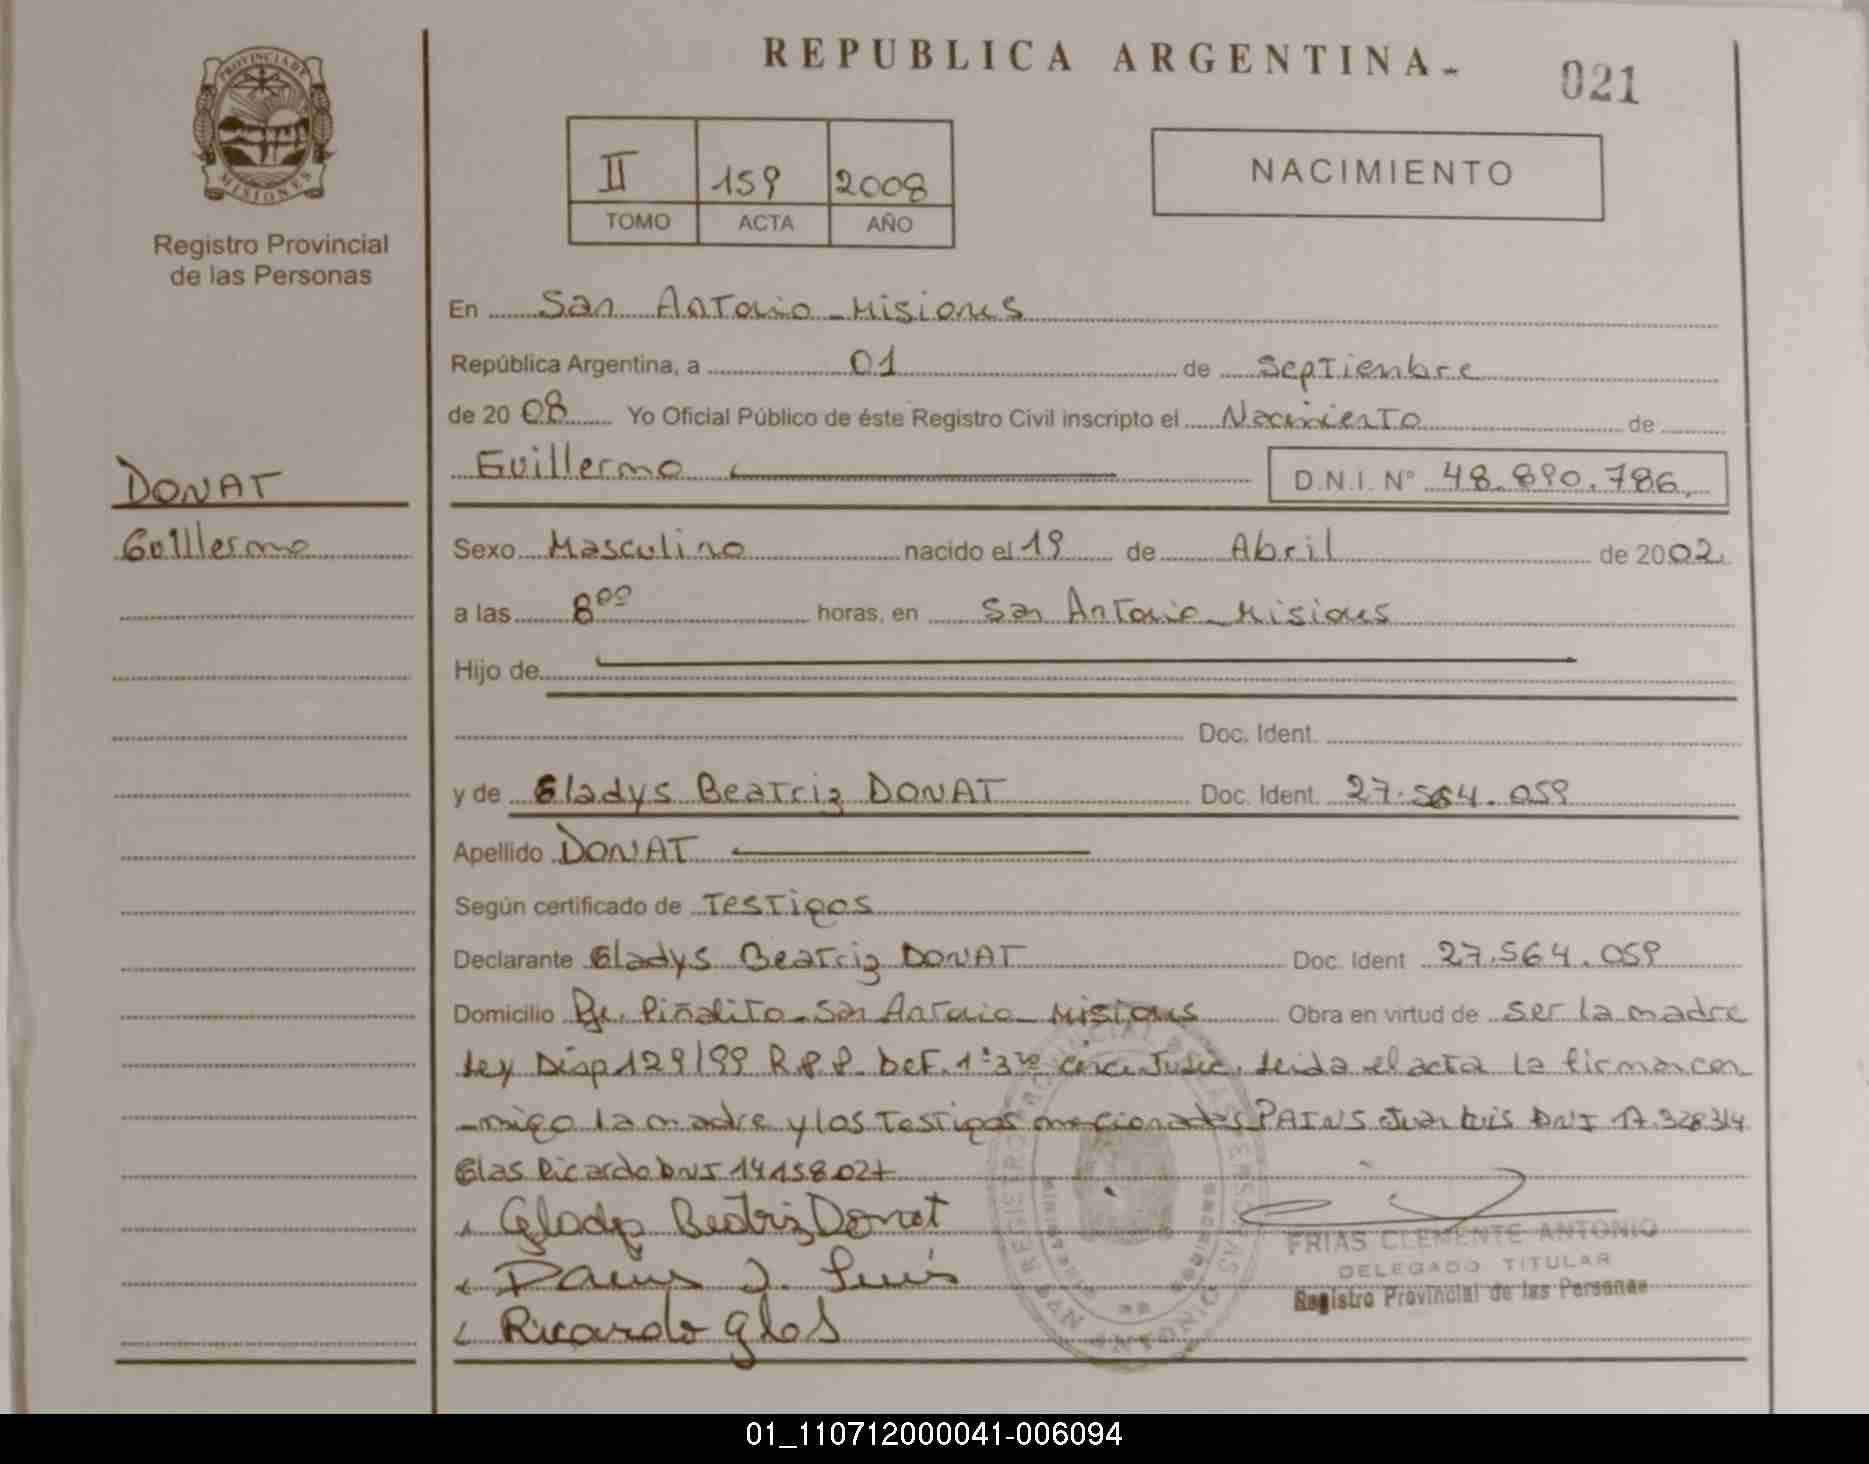 REPUBLICA ARGENTINA-
021
PROVINCIA DE
MISIONES
Registro Provincial
de las Personas
II 159 2008
TOMO ACTA AÑO
NACIMIENTO
En San Antonio - Misiones
República Argentina, a 01 de Septiembre
de 2008 Yo Oficial Público de éste Registro Civil inscripto el Nacimiento de
Guillermo D.N.I. Nº 48.890.786
DONAT
Guillermo
Sexo Masculino nacido el 19 de Abril de 2002
a las 8⁰⁰ horas, en San Antonio - Misiones
Hijo de
Doc. Ident.
y de Gladys Beatriz DONAT Doc. Ident. 27.564.059
Apellido DONAT
Según certificado de Testigos
Declarante Gladys Beatriz DONAT Doc. Ident 27.564.059
Domicilio Piñalito - San Antonio - Misiones Obra en virtud de ser la madre
Ley Disp 129/99 R.P.P. Leida el acta la firman con
-migo la madre y los Testigos mencionados PAINS Juan Luis DNI 17.328314
Glas Ricardo DNI 14158027
Gladys Beatriz Donat
Pains J. Luis
Ricardo glas
FRIAS CLEMENTE ANTONIO
DELEGADO TITULAR
Registro Provincial de las Personas
01_110712000041-006094